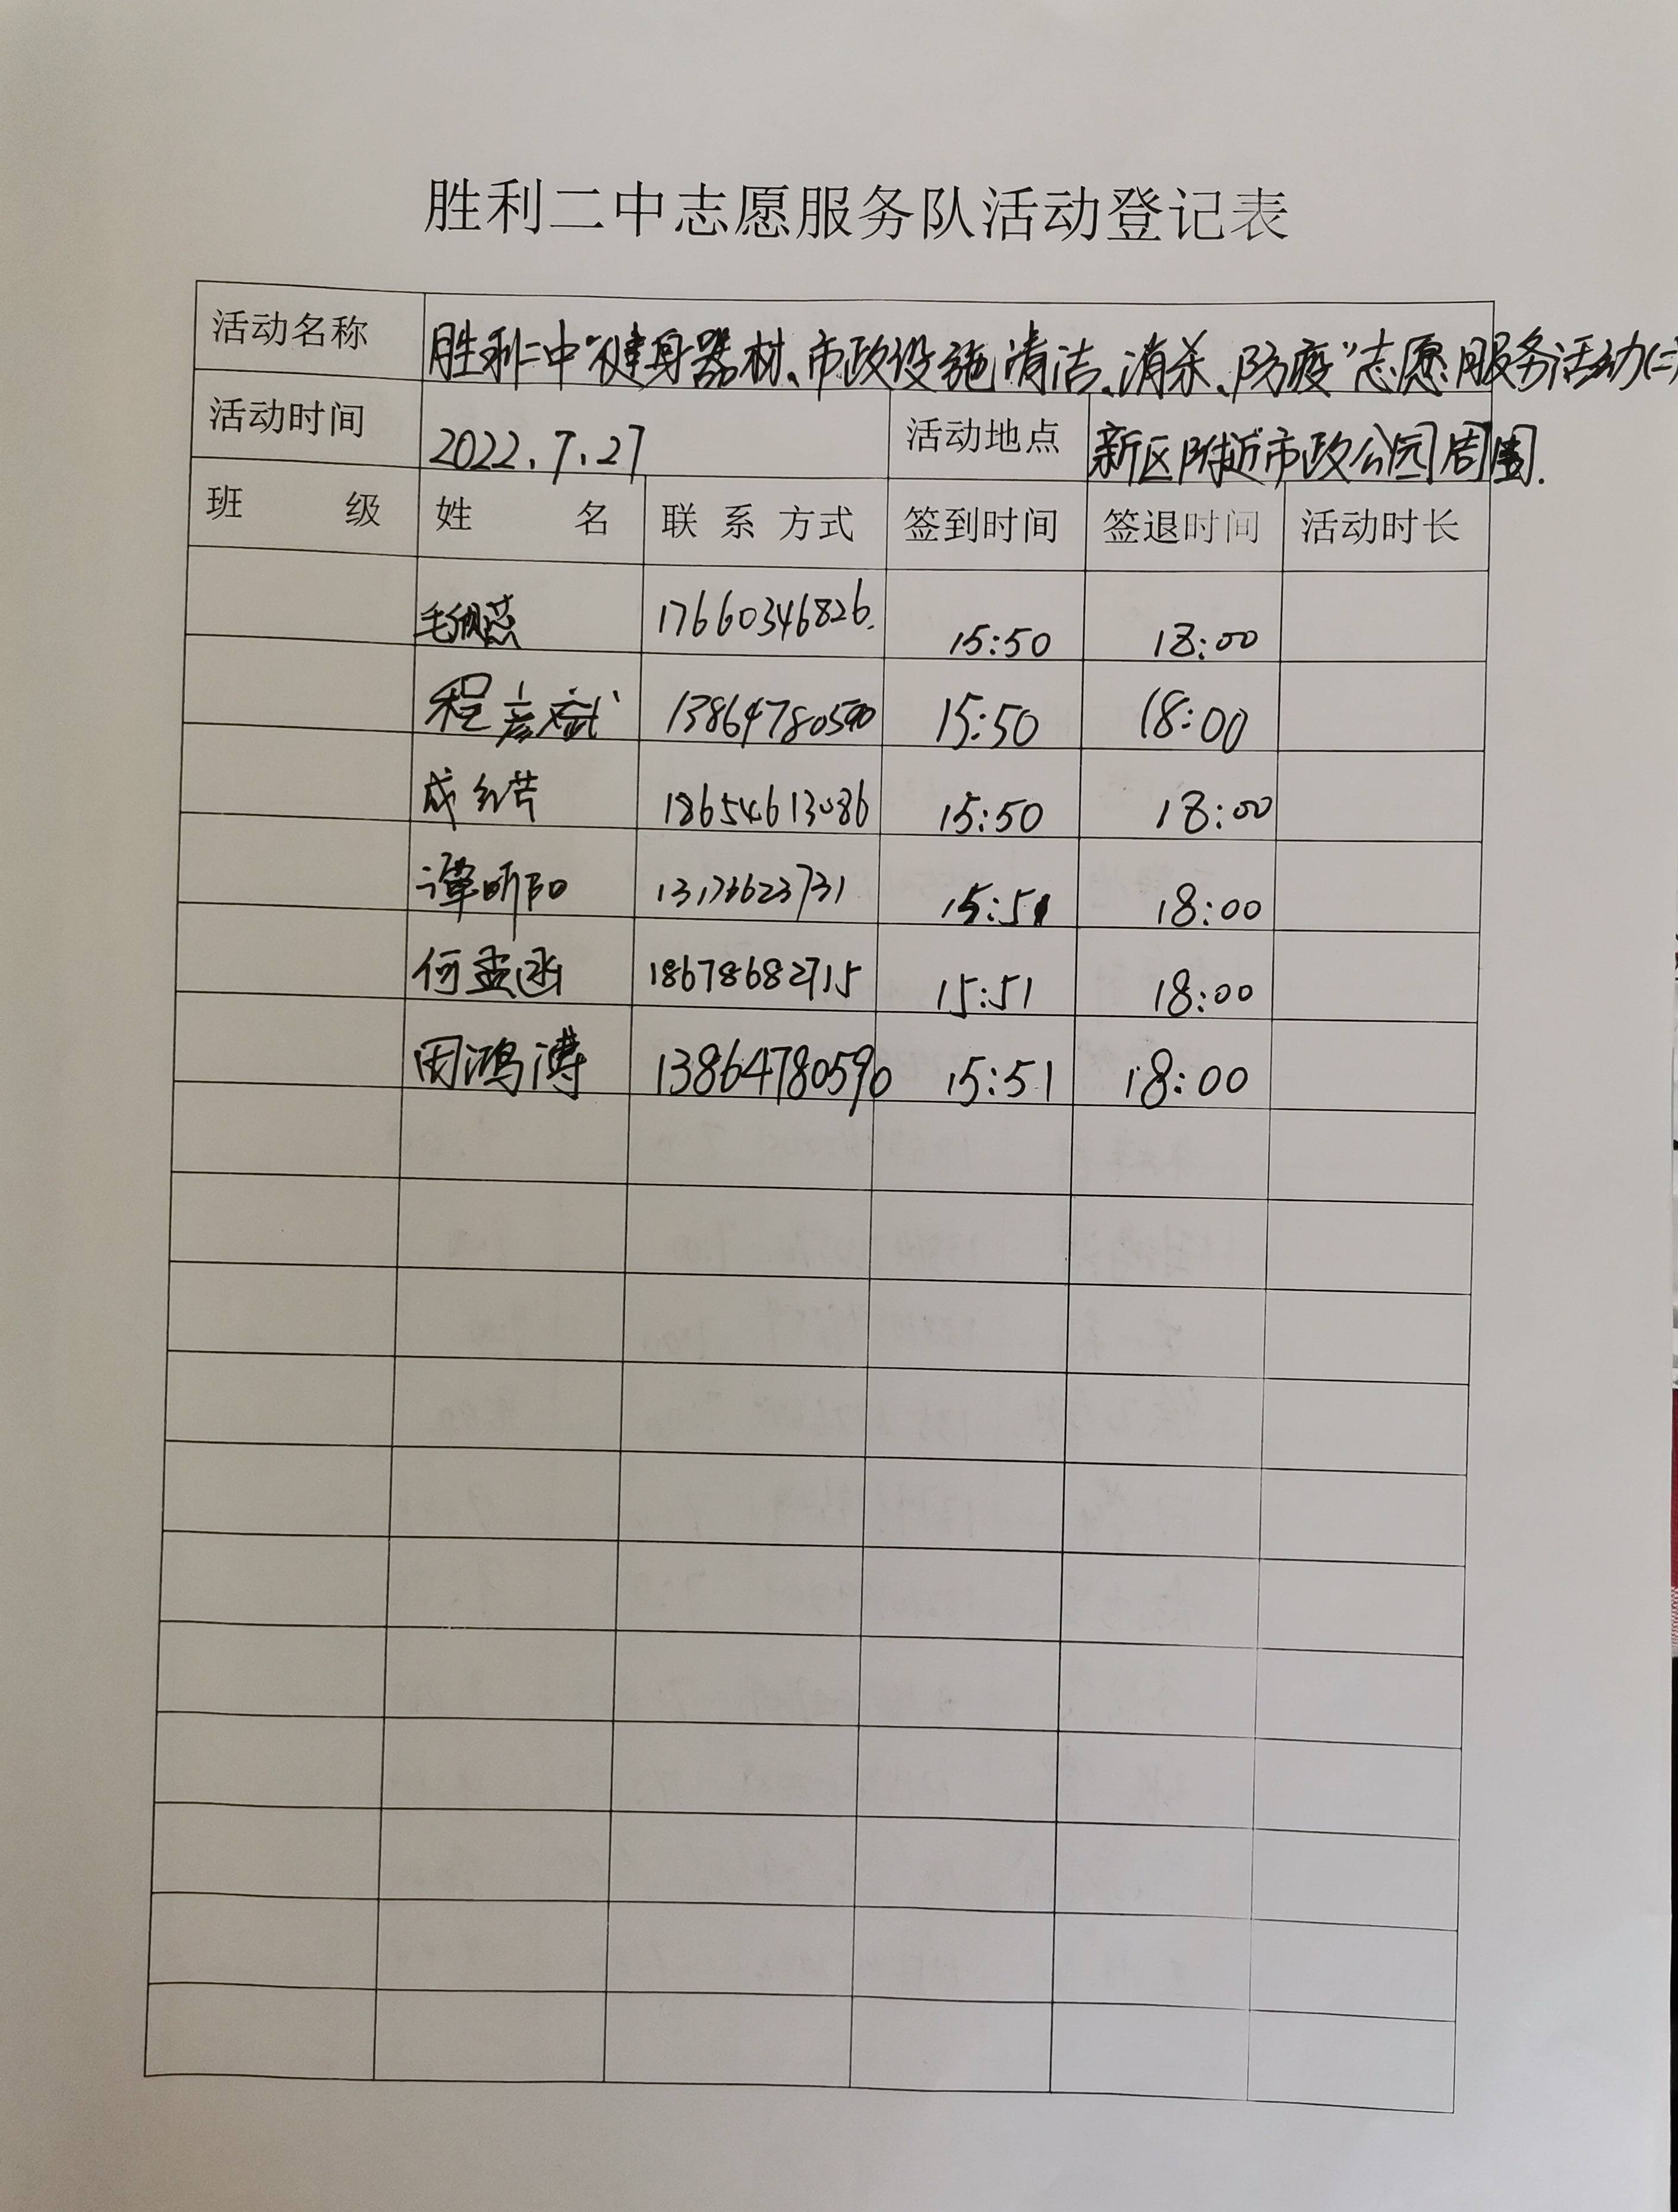 胜利二中志愿服务队活动登记表
活动名称 胜利二中“健身器材、市政设施清洁、消杀、防疫”志愿服务活动(二)
活动时间 2022.7.27 活动地点 新区附近市政公园周围.
班 级 姓 名 联系方式 签到时间 签退时间 活动时长
17660346826. 15:50 18:00
程彦斌 13864780590 15:50 18:00
成 18654613086 15:50 18:00
谭昕阳 15:51 18:00
何孟函 18678682715 15:51 18:00
周鸿博 13864780590 15:51 18:00